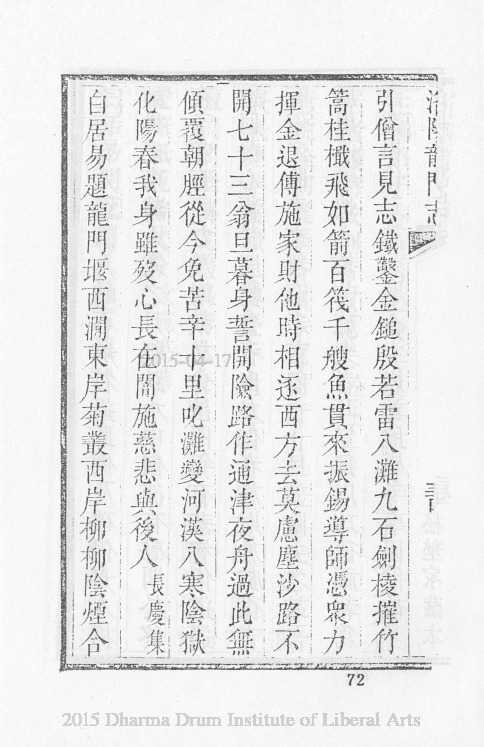 洛陽龍門志
引僧言見志鐵鑿金鎚殷若雷八灘九石劍棱摧竹
篙桂檝飛如箭百筏千艘魚貫來振錫導師憑衆力
揮金退傅施家財他時相逐西方去莫慮塵沙路不
開七十三翁旦暮身誓開險路作通津夜舟過此無
傾覆朝脛從今免苦辛十里叱灘變河漢八寒陰獄
化陽春我身雖歿心長在闇施慈悲與後人 長慶集
白居易題龍門堰西澗東岸菊叢西岸柳柳陰煙合
2015-04-17
72
2015 Dharma Drum Institute of Liberal Arts